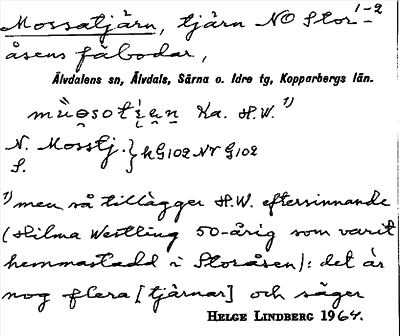 Mossatjärn, tjärn NO Stor-
1-2
åsens fäbodar,
Älvdalens sn, Älvdals, Särna o. Idre tg, Kopparbergs län.
Ka. H.W. 1)
N. Mosstj. } hG102NV G102
S.
1) men så tillägger H.W. eftersinnande
(Hilma Westling 50-årig som varit
hemmastadd i Storåsen): det är
nog flera [tjärnar] och säger
HELGE LINDBERG 1964.